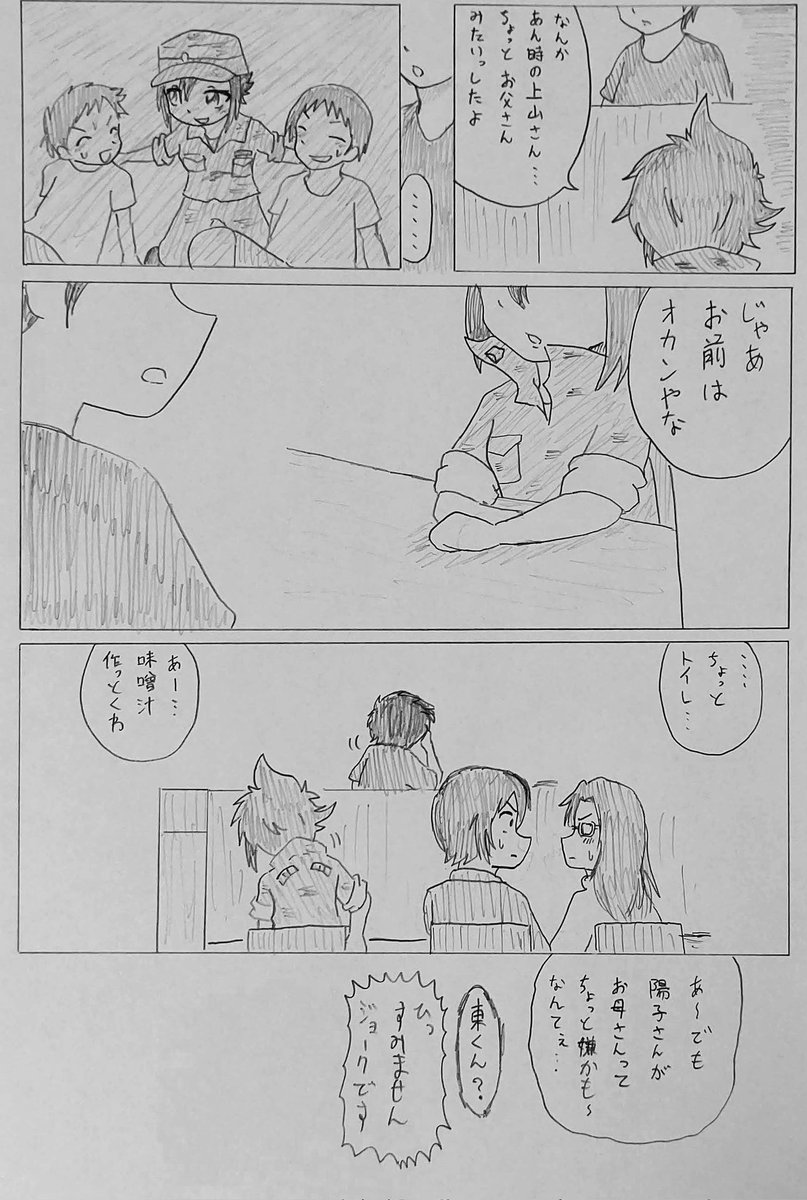 なんか
あん時の上山さん…
ちょっとお父さん
みたいっしたよ
……
じゃあ
お前は
オカンやな
……
ちょっと
トイレ…
あー…
味噌汁
作っとくわ
あ〜でも
陽子さんが
お母さんって
ちょっと嫌かも〜
なんてぇ…
東くん?
ひっ
すみません
ジョークです